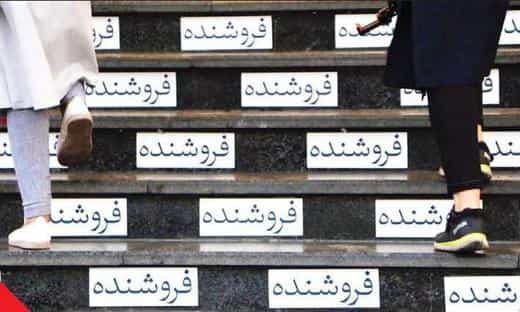 فروشنده فروشنده فروشنده
فروشنده فروشنده فروشنده
فروشنده فروشنده
فروشنده فروشنده فروشنده
فروشنده فروشنده فروشنده